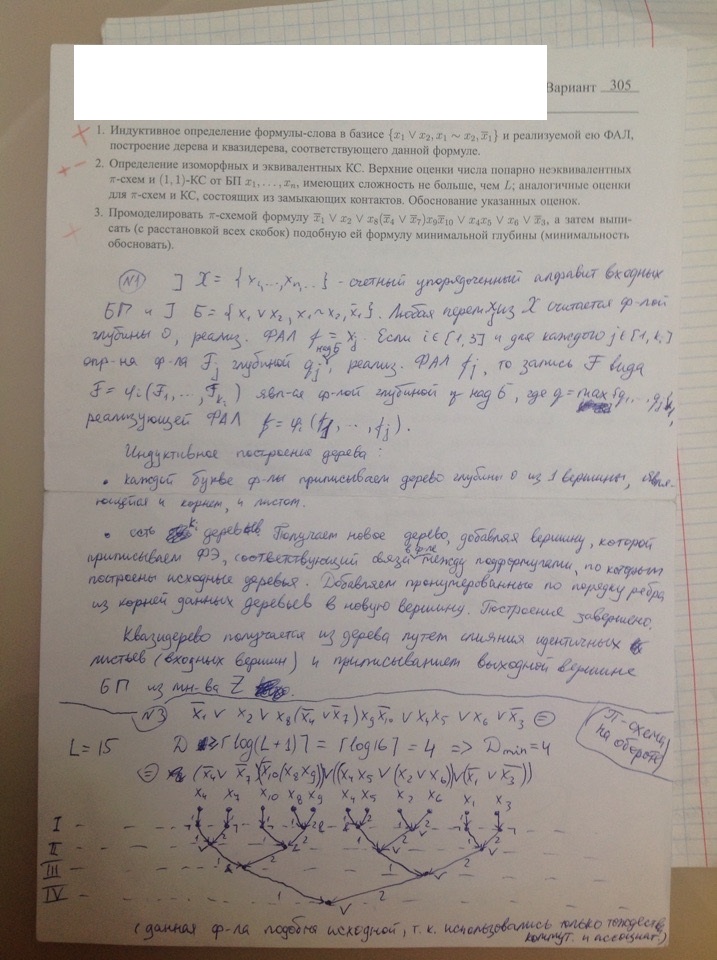 Вариант 305
1. Индуктивное определение формулы-слова в базисе {x₁ ∨ x₂, x₁ ∼ x₂, x̄₁} и реализуемой ею ФАЛ,
построение дерева и квазидерева, соответствующего данной формуле.
2. Определение изоморфных и эквивалентных КС. Верхние оценки числа попарно неэквивалентных
π-схем и (1, 1)-КС от БП x₁, . . . , xₙ, имеющих сложность не больше, чем L; аналогичные оценки
для π-схем и КС, состоящих из замыкающих контактов. Обоснование указанных оценок.
3. Промоделировать π-схемой формулу x̄₁ ∨ x₂ ∨ x₈(x̄₄ ∨ x̄₇)x₉x̄₁₀ ∨ x₄x₅ ∨ x₆ ∨ x̄₃, а затем выпи-
сать (с расстановкой всех скобок) подобную ей формулу минимальной глубины (минимальность
обосновать).
№1 ] X = {x₁, ..., xₙ, ..} - счетный упорядоченный алфавит входных
БП и ] Б = {x₁ ∨ x₂, x₁ ∼ x₂, x̄₁}. Любая перем xⱼ из X считается ф-лой
глубины 0, реализ. ФАЛ f = xⱼ. Если i∈[1,3] и для каждого j∈[1,kᵢ]
опр-на ф-ла Fⱼ глубиной qⱼ над Б, реализ. ФАЛ fⱼ, то запись F вида
F = φᵢ(F₁, ..., F_kᵢ) явл-ся ф-лой глубиной q над Б, где q = max{q₁, ..., qⱼ}+1,
реализующей ФАЛ f = φᵢ(f₁, ..., fⱼ).
Индуктивное построение дерева:
• каждой букве ф-лы приписываем дерево глубины 0 из 1 вершины, явля-
ющейся и корнем, и листом.
• есть kᵢ деревьев. Получаем новое дерево, добавляя вершину, которой
приписываем ФЭ, соответствующий связи в ф-ле между подформулами, по которым
построены исходные деревья. Добавляем пронумерованные по порядку ребра
из корней данных деревьев в новую вершину. Построение завершено.
Квазидерево получается из дерева путем слияния идентичных
листьев (входных вершин) и приписыванием выходной вершине
БП из мн-ва Z
№3 x̄₁ ∨ x₂ ∨ x₈(x̄₄ ∨ x̄₇)x₉x̄₁₀ ∨ x₄x₅ ∨ x₆ ∨ x̄₃ ⊜
П-схема
на обороте
L = 15 D ⌈log(L+1)⌉ = ⌈log16⌉ = 4 => Dmin=4
⊜ (x̄₄ ∨ x̄₇)(x̄₁₀(x₈x₉)) ∨ ((x₄x₅ ∨ (x₂ ∨ x₆)) ∨ (x̄₁ ∨ x̄₃))
x₄ x₇ x₁₀ x₈ x₉ x₄ x₅ x₂ x₆ x₁ x₃
I
II
III
IV
(данная ф-ла подобна исходной, т. к. использовались только тождеств.
коммут. и ассоциат.)